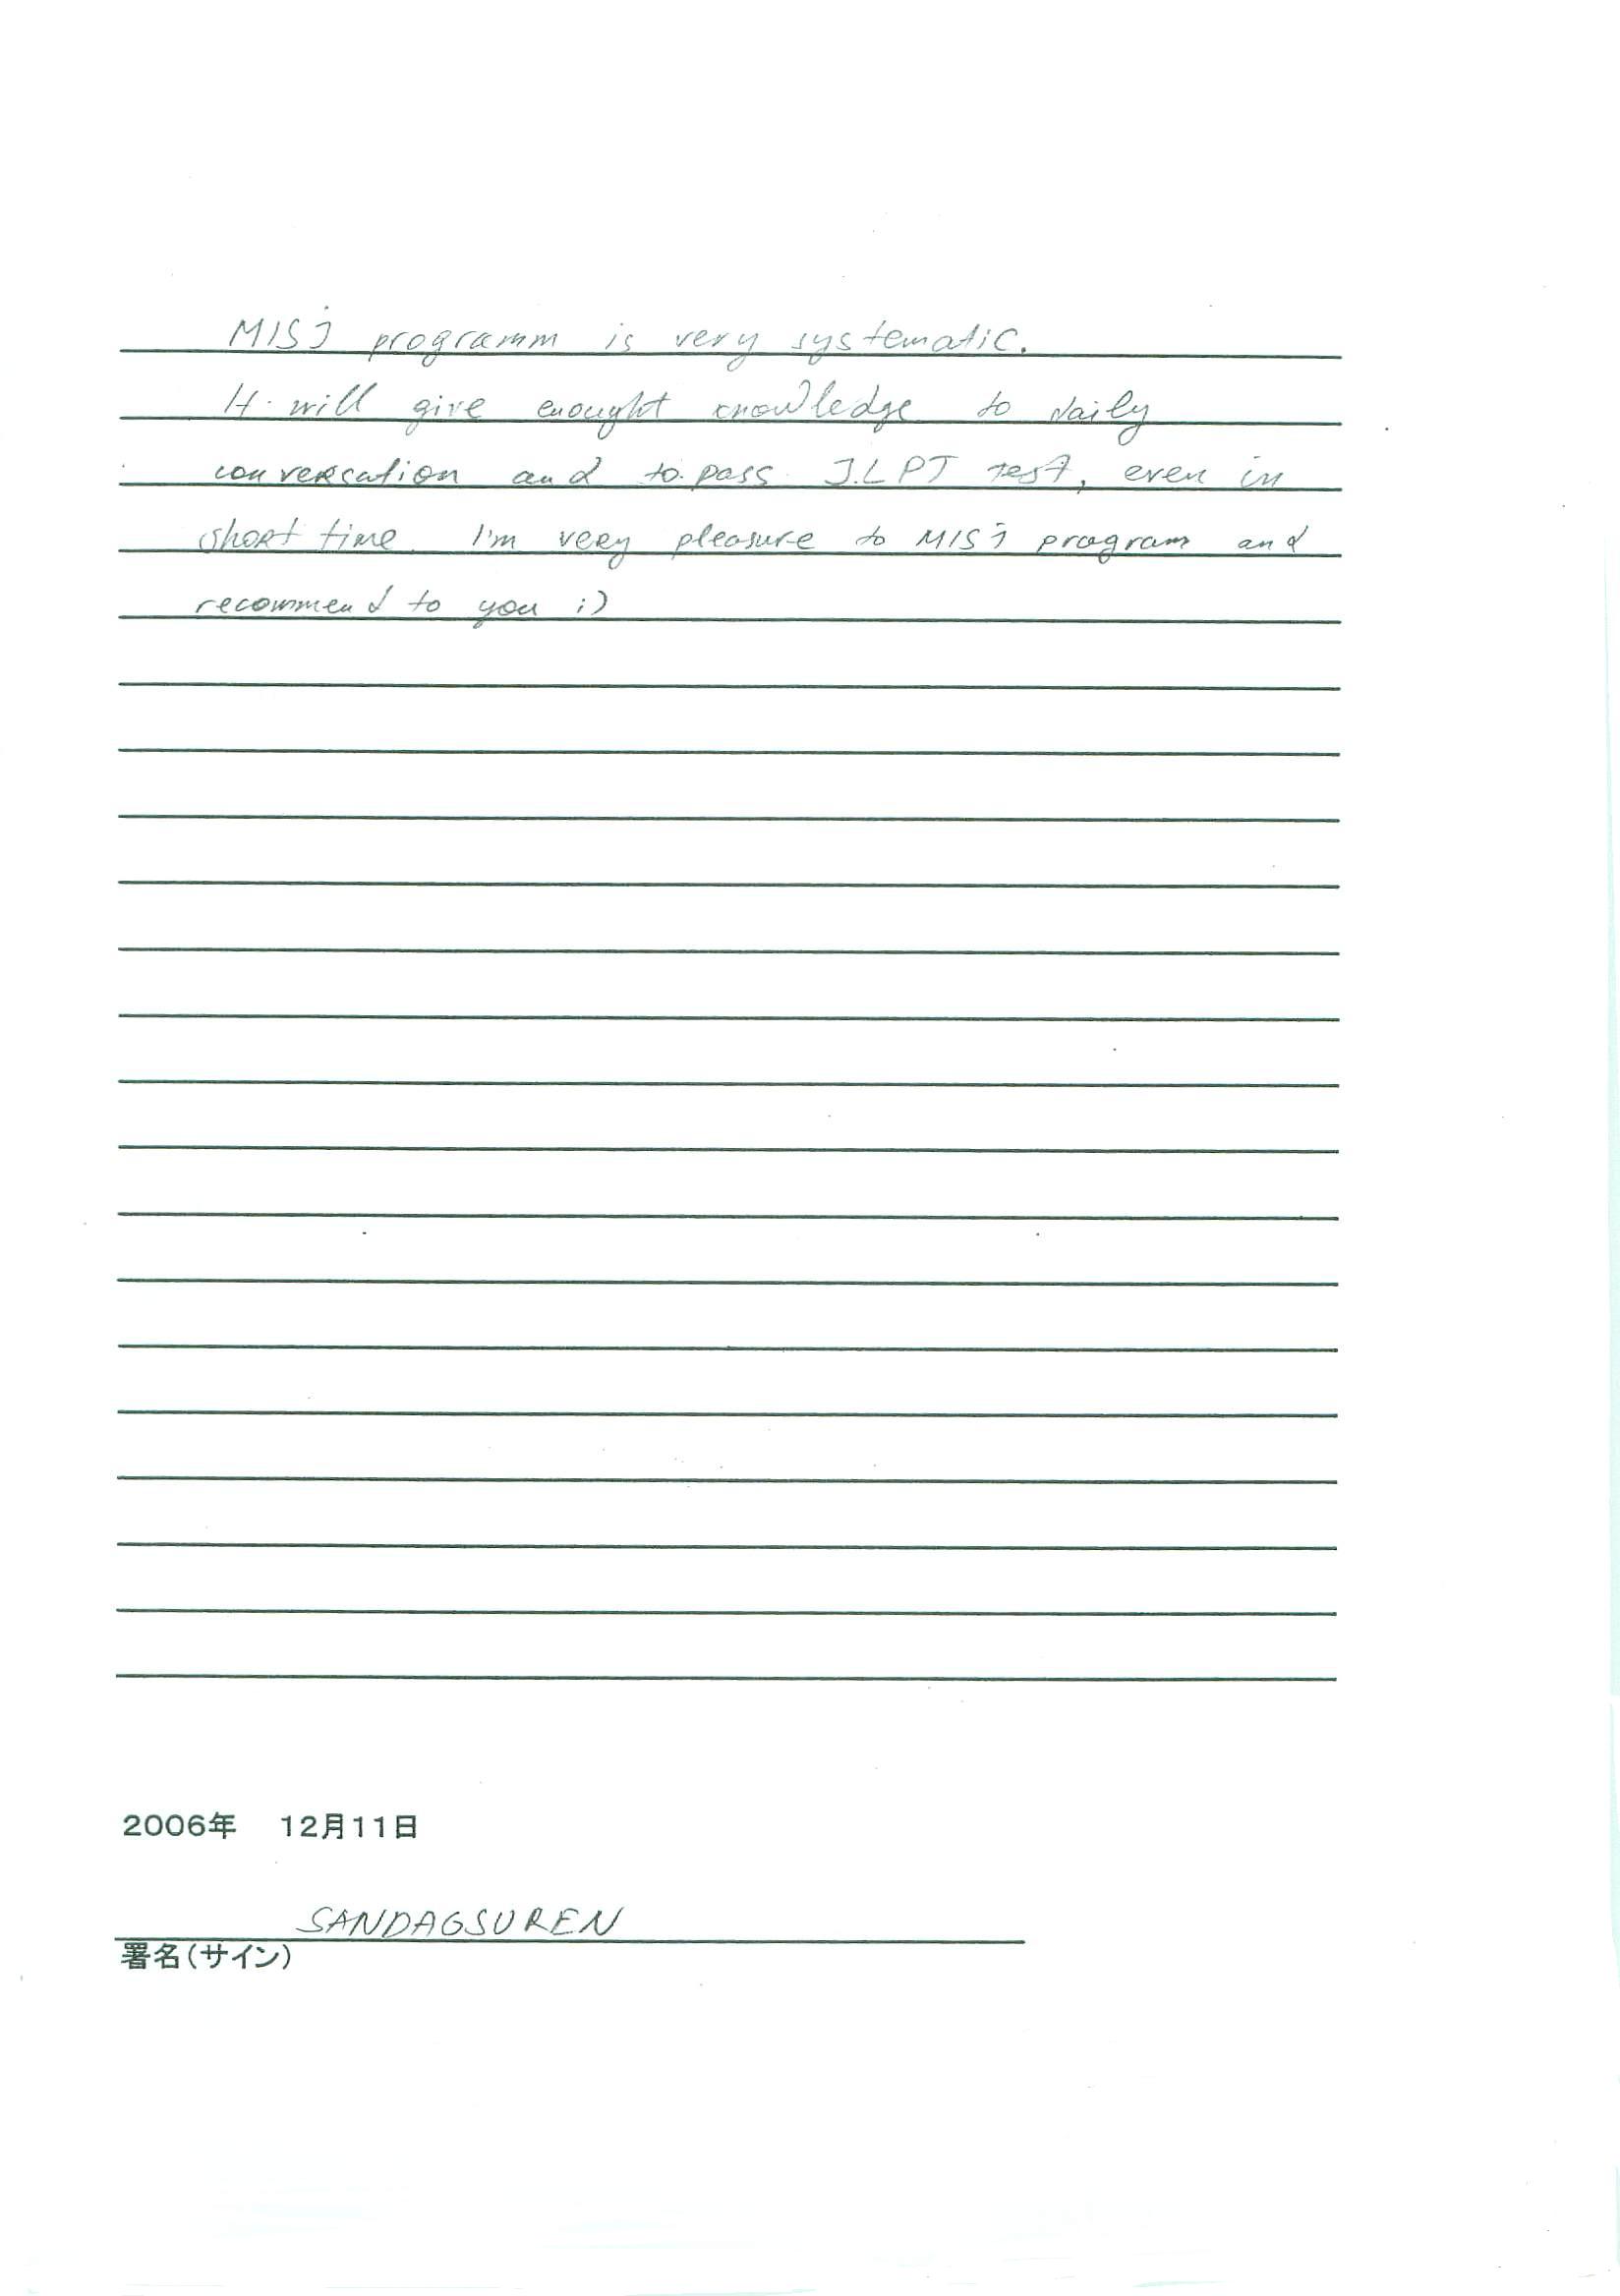 MISJ programm is very systematic.
It will give enought knowledge to daily
conversation and to pass J.LPT test, even in
short time. I'm very pleasure to MISJ program and
recommend to you :)
2006年 12月11日
SANDAGSUREN
署名(サイン)